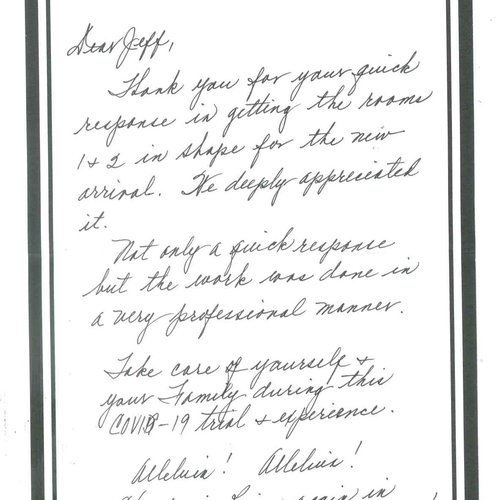 Dear Jeff,
Thank you for your quick
response in getting the rooms
1 + 2 in shape for the new
arrival. We deeply appreciated
it.
Not only a quick response
but the work was done in
a very professional manner.
Take care of yourself +
your Family during this
COVID-19 trial + experience.
Alleluia! Alleluia!
again in